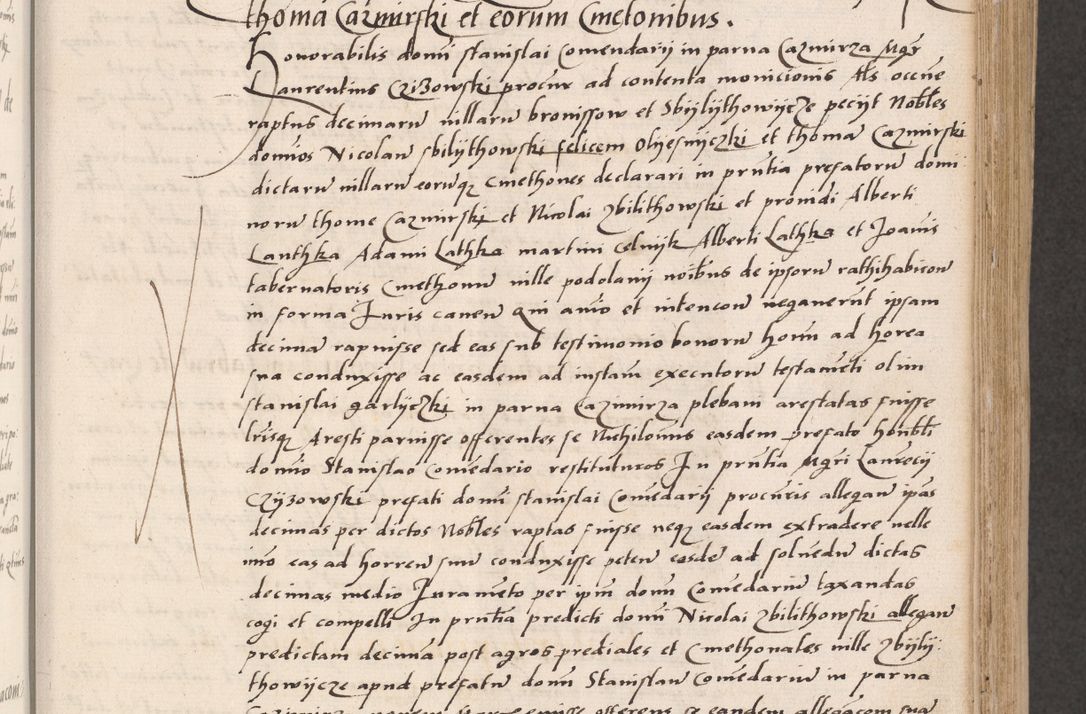 thoma Cazmirski et eorum Cmetonibus.
Honorabilis domi stanislai Comendarij in parua Cazmirza Mgr
Laurentius Czizowski procur ad contenta monicionis Als occne
raptus decimaru villaru bronissow et Sbijlijthowijcze pecijt Nobles
domios Nicolau sbilijthowski felicem Olijesnijczki et thoma Cazmirski
dictaru villaru eorumq Cmethones declarari in prntia prefatoru domi
noru thome Cazmirski et Nicolai zbilithowski et prouidi Alberti
Lanthka Adami Lathka martini Celnijk Alberti Lathka et Joanis
tabernatoris Cmethonu ville podolanij noibus de ipsoru rathihabicon
in forma Juris cauen Qui animo et intencon negauerunt ipsam
decima rapuisse sed eas sub testimonio bonoru homi ad horea
sua conduxisse ac easdem ad instam executoru testameti olim
stanislai garlijczki in parua Cazimirza plebani arestatas fuisse
lrisq Aresti paruisse offerentes se Nichilomis easdem prefato honbli
domio Stanislao Comedario restituturos In prntia Mgri Laurecij
Czijzowski prefati domi stanislai Comedarij procuris allegan ipas
decimas per dictos Nobles raptas fuisse neq easdem extradere velle
imo eas ad horreu suu conduxisse peten eosde ad soluedu dictas
decimas medio Jurameto per ipm domi Comedariu taxandas
cogi et compelli In prntia predicti domi Nicolai zbilithowski allegan
predictam decima post agros prediales et Cmethonales ville zbijlij:
thowijcze apud prefatu domi Stanislau Comedariu in parua